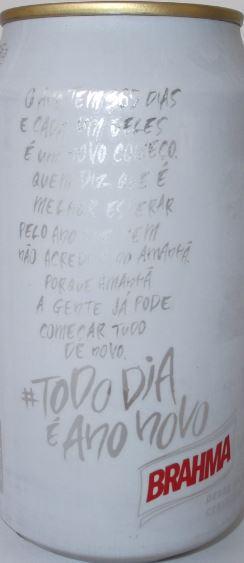 O ANO TEM 365 DIAS
E CADA UM DELES
É UM NOVO COMEÇO.
QUEM DIZ QUE É
MELHOR ESPERAR
PELO ANO QUE VEM
NÃO ACREDITA NO AMANHÃ
PORQUE AMANHÃ
A GENTE JÁ PODE
COMEÇAR TUDO
DE NOVO.
#TODO DIA
É ANO NOVO
BRAHMA